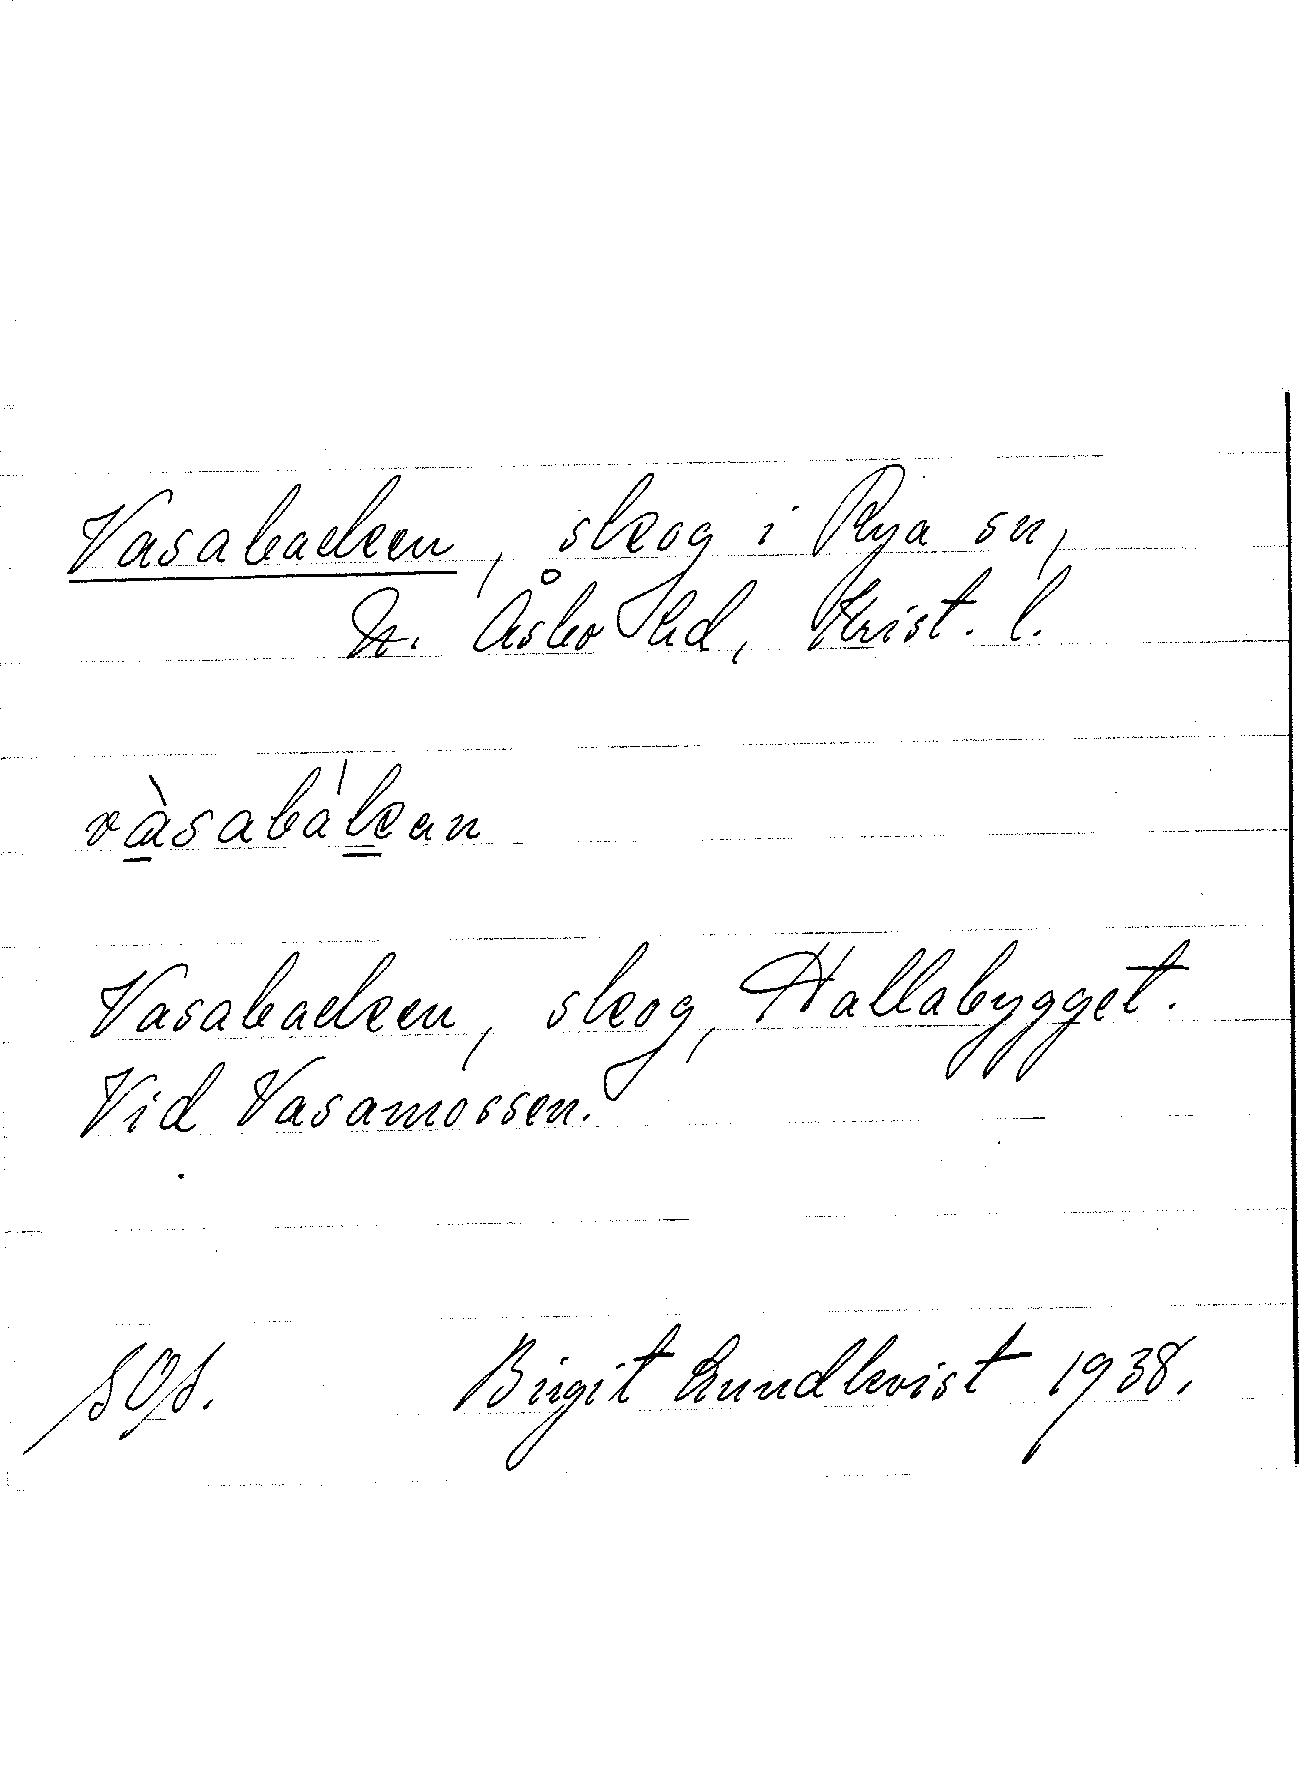 Vasabacken, skog i Rya sn,
N. Åsbo hd, Krist. l.
vàsabákan
Vasabacken, skog, Hallabygget.
Vid Vasamossen.
SOS. Birgit Lundkvist 1938.